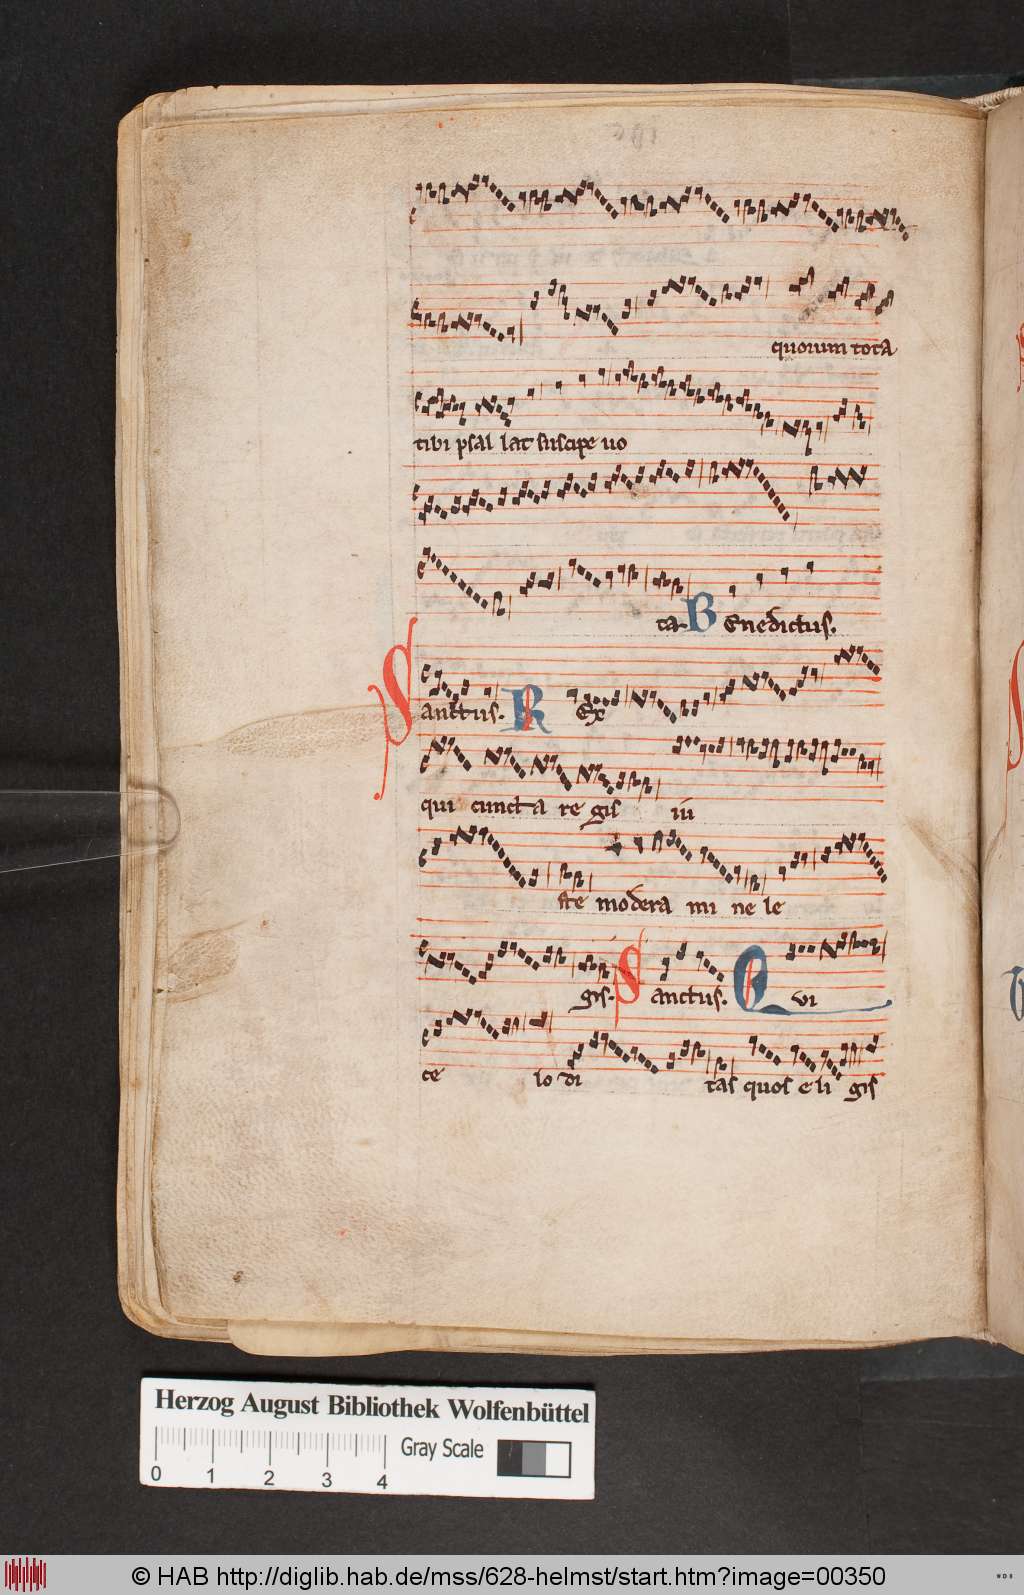 quorum tota
tibi psal lat suscipe uo
ta. Benedictus.
Sanctus. Rex
qui cuncta regis iu
ste modera mi ne le
gis. Sanctus. Qui
te lo di tas quos eli gis
Herzog August Bibliothek Wolfenbüttel
Gray Scale
0 1 2 3 4
© HAB http://diglib.hab.de/mss/628-helmst/start.htm?image=00350
WDB